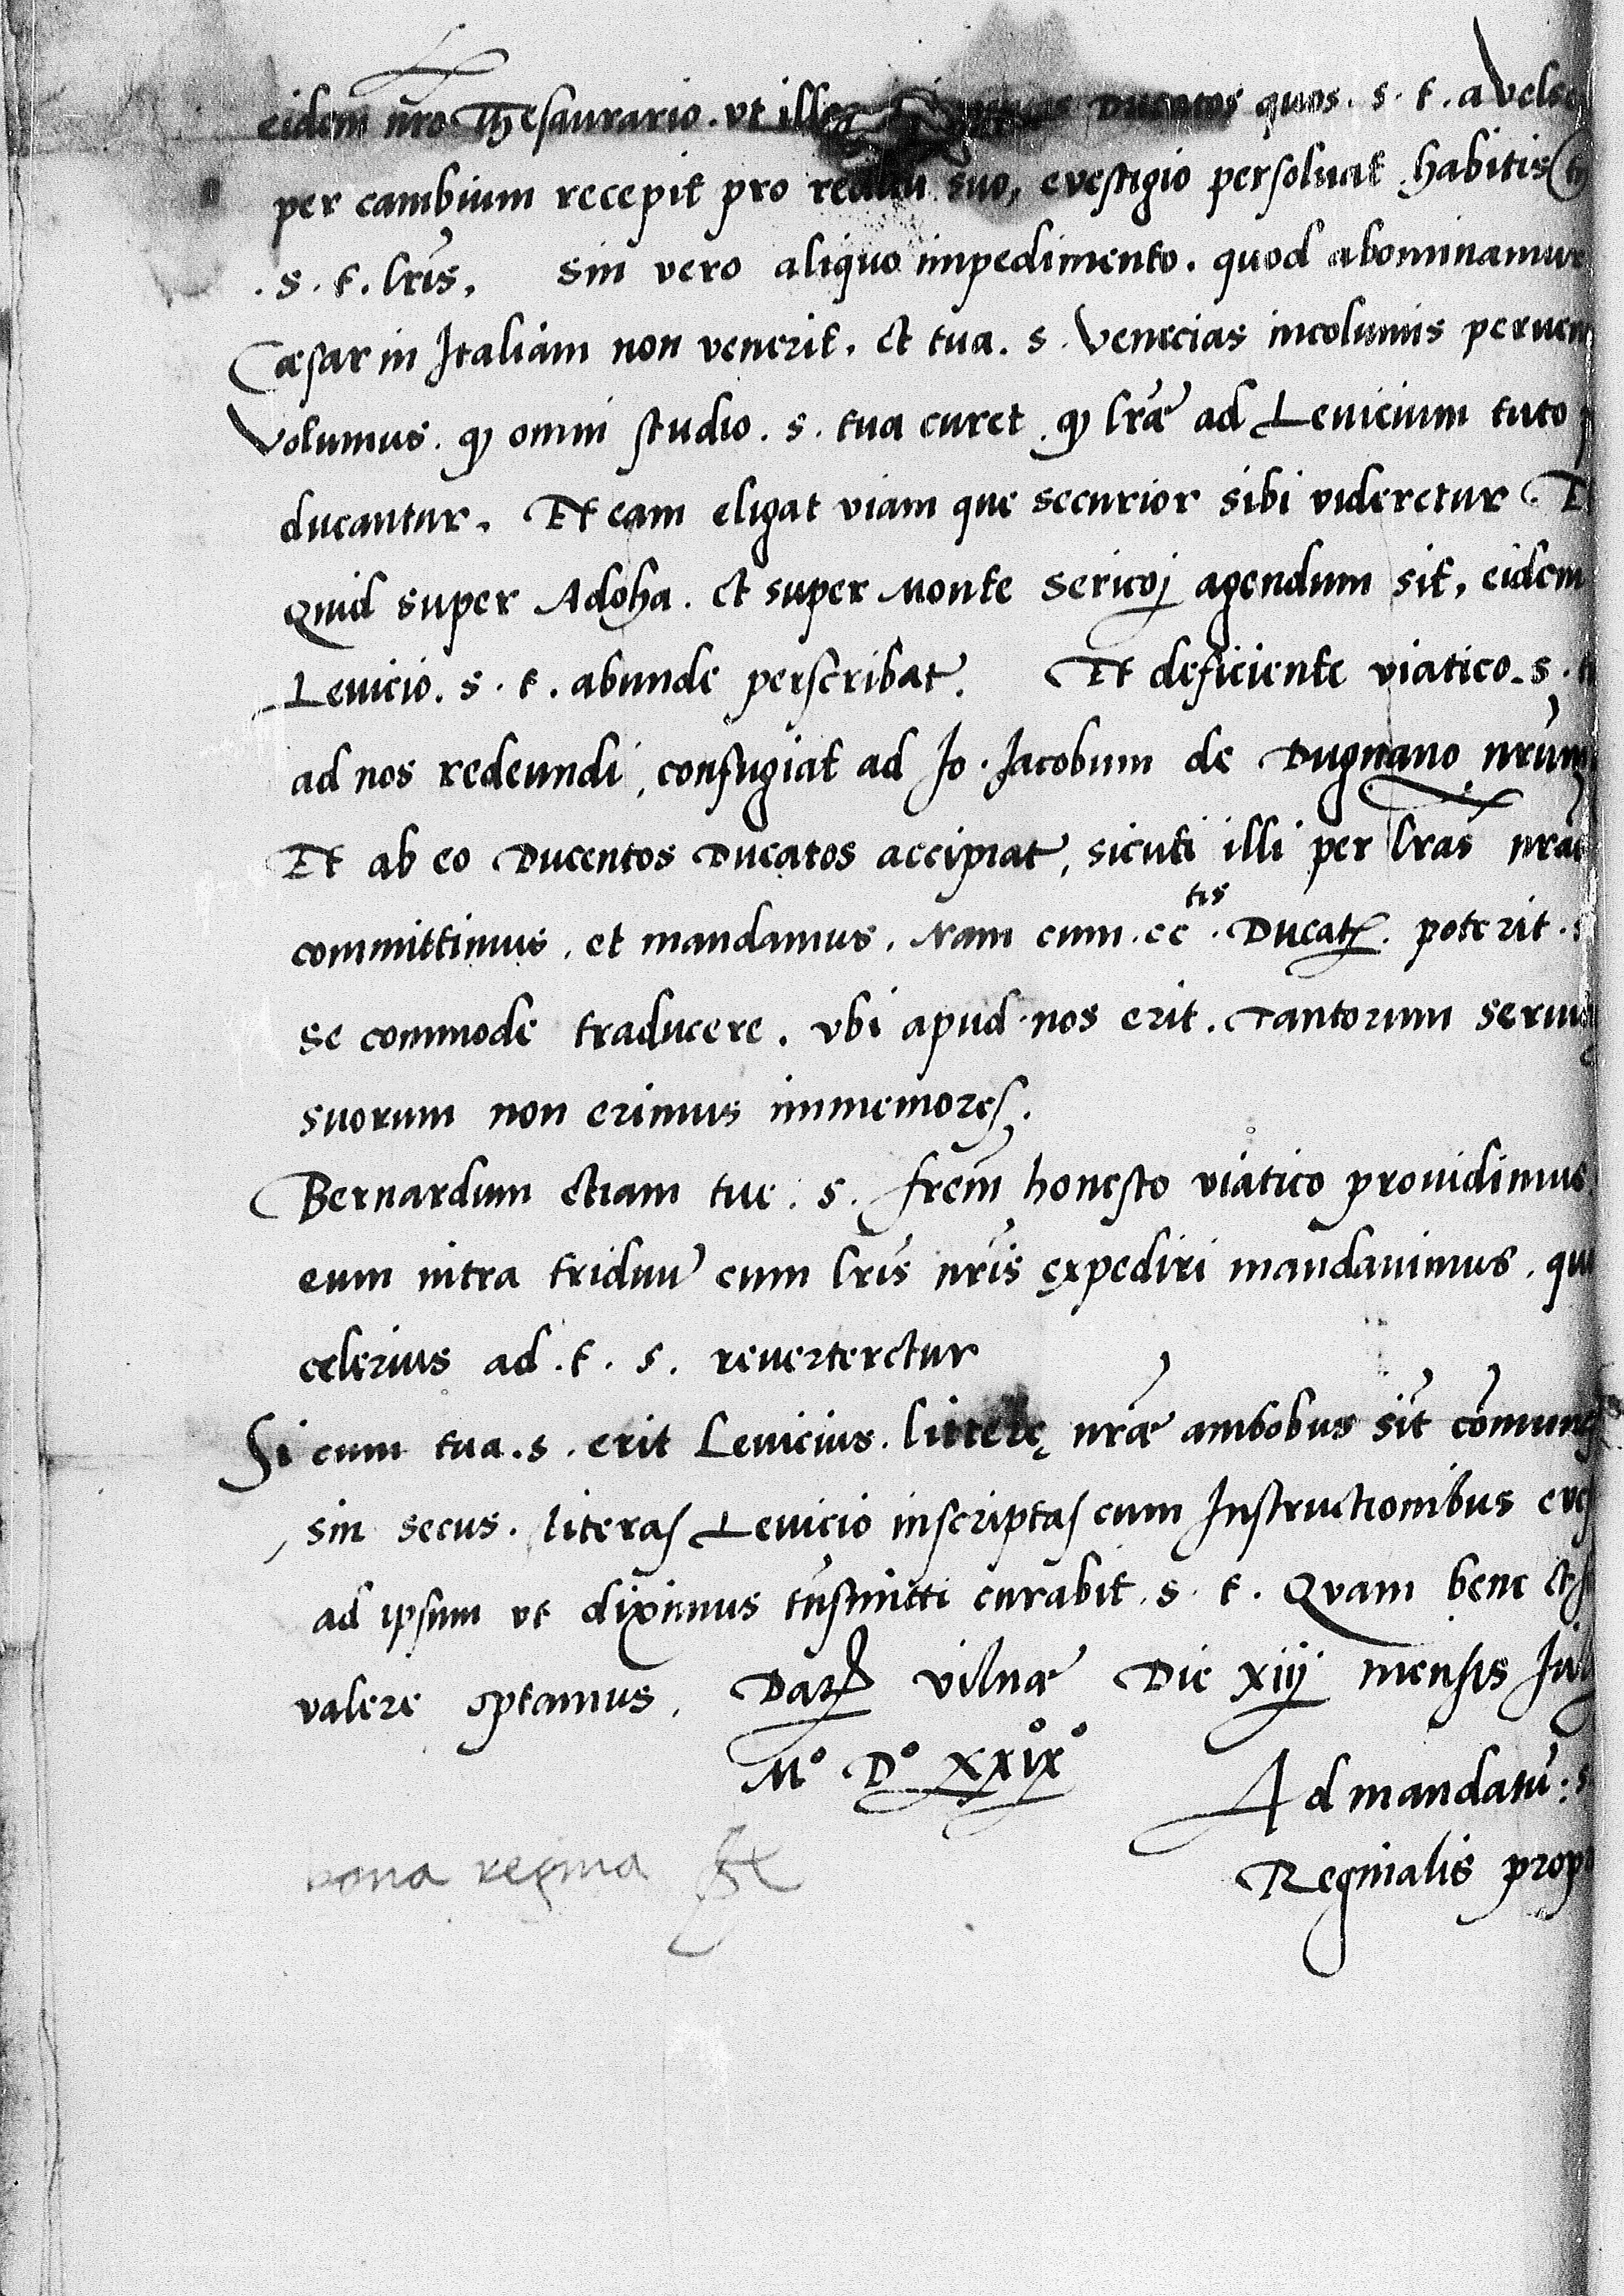 eidem nr̃o Thesaurario. vt Ducatos quos. s. t. a
per cambium recepit pro reditu suo, evestigio persoluat habitis
. s. t. lr̃is. Sin vero aliquo impedimento. quod abominamur
Cæsar in Italiam non venerit. et tua. s. Venecias incolumis
Volumus. ꝙ omni studio. s. tua curet. ꝙ lr̃æ ad Leuicium tuto
ducantur. Et eam eligat viam que securior sibi videretur.
Quid super Adoha. et super Monte Sericoj agendum sit, eidem
Leuicio. s. t. abunde perscribat. Et deficiente viatico. s.
ad nos redeundi, confugiat ad Jo. Jacobum de Dugnano nr̃um
Et ab eo Ducentos Ducatos accipiat, sicuti illi per lr̃as nr̃as
committimus. et mandamus. Nam cum. cc^tis. Ducatꝭ. poterit.
se commode traducere. vbi apud nos erit. Tantorum
suorum non erimus immemores.
Bernardum etiam tue. s. fr̃em honesto viatico prouidimus
eum intra triduũ cum lr̃is nr̃is expediri mandauimus.
celerius ad. t. s. reuerteretur
Si cum tua. s. erit Leuicius. litterę nr̃æ ambobus sĩt
sin secus. literas Leuicio inscriptas cum Instructionibus
ad ipsum vt diximus trãsmitti curabit. s. t. Quam bene
valere optamus. Datꝭ Vilnæ Die xiij mensis
M° D° XXIX°
Ad mandatũ.
Reginalis
bona regina